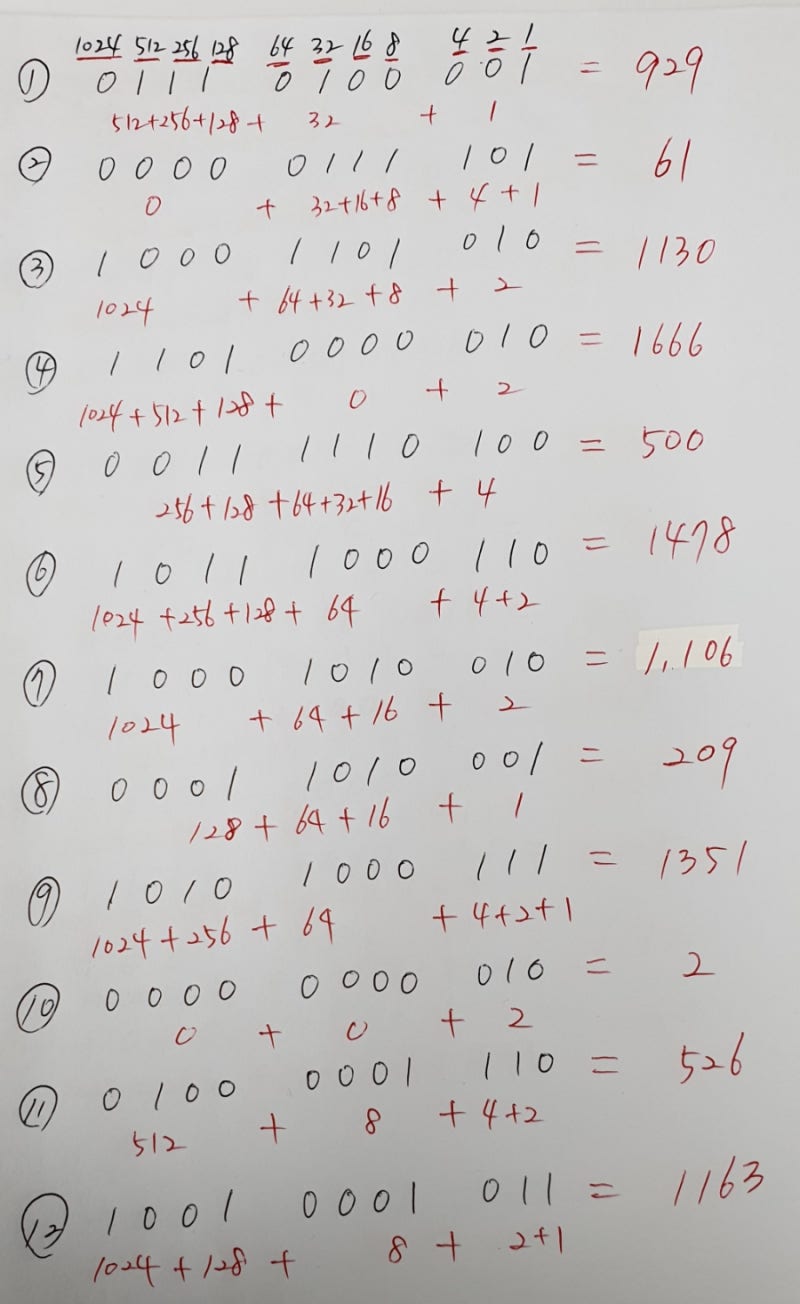 1024 512 256 128 64 32 16 8 4 2 1
① 0 1 1 1 0 1 0 0 0 0 1 = 929
512+256+128+ 32 + 1
② 0 0 0 0 0 1 1 1 1 0 1 = 61
0 + 32+16+8 + 4+1
③ 1 0 0 0 1 1 0 1 0 1 0 = 1130
1024 + 64+32+8 + 2
④ 1 1 0 1 0 0 0 0 0 1 0 = 1666
1024+512+128+ 0 + 2
⑤ 0 0 1 1 1 1 1 0 1 0 0 = 500
256+128+64+32+16 + 4
⑥ 1 0 1 1 1 0 0 0 1 1 0 = 1478
1024+256+128+ 64 + 4+2
⑦ 1 0 0 0 1 0 1 0 0 1 0 = 1,106
1024 + 64+16 + 2
⑧ 0 0 0 1 1 0 1 0 0 0 1 = 209
128+64+16 + 1
⑨ 1 0 1 0 1 0 0 0 1 1 1 = 1351
1024+256+ 64 +4+2+1
⑩ 0 0 0 0 0 0 0 0 0 1 0 = 2
0 + 0 + 2
⑪ 0 1 0 0 0 0 0 1 1 1 0 = 526
512 + 8 +4+2
⑫ 1 0 0 1 0 0 0 1 0 1 1 = 1163
1024+128+ 8 + 2+1